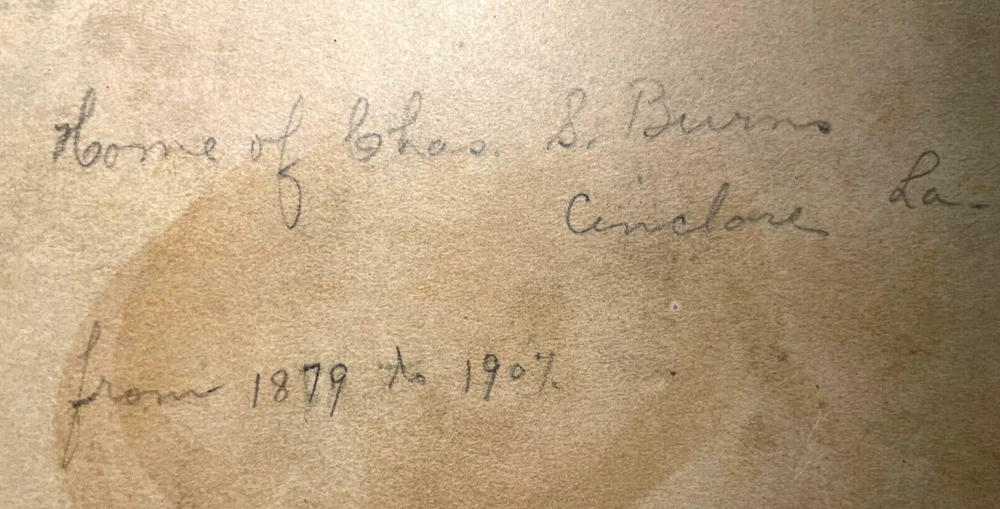 Home of Chas. S. Burns
Cinclare La-
from 1879 to 1907.